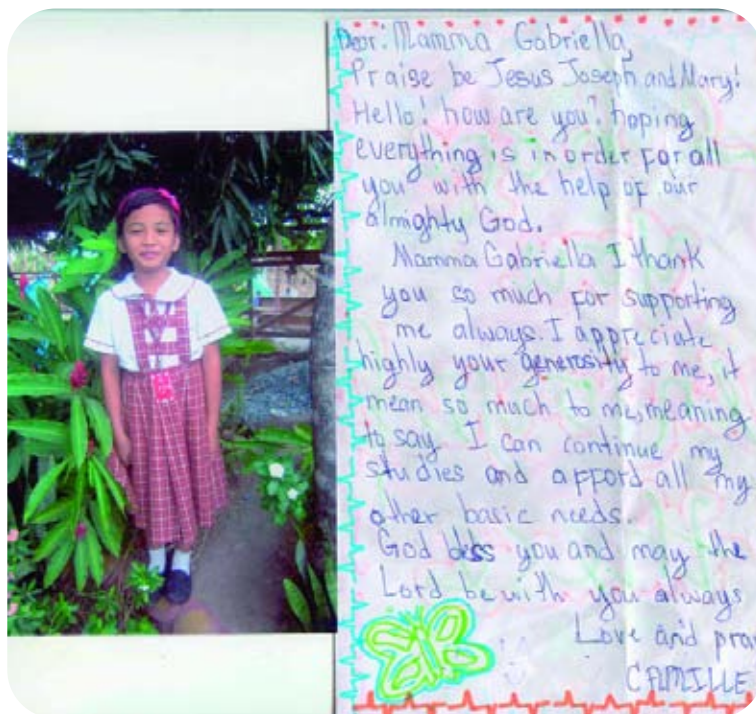 Dear: Mamma Gabriella,
Praise be Jesus Joseph and Mary!
Hello! how are you? hoping
everything is in order for all
you with the help of our
almighty God.
Mamma Gabriella I thank
you so much for supporting
me always. I appreciate
highly your generosity to me, it
mean so much to me, meaning
to say I can continue my
studies and apford all my
other basic needs.
God bless you and may the
Lord be with you always
Love and pra
CAMILLE